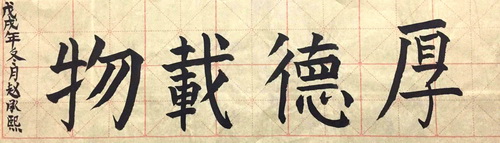 厚德載物
戊戌年冬月赵承熙